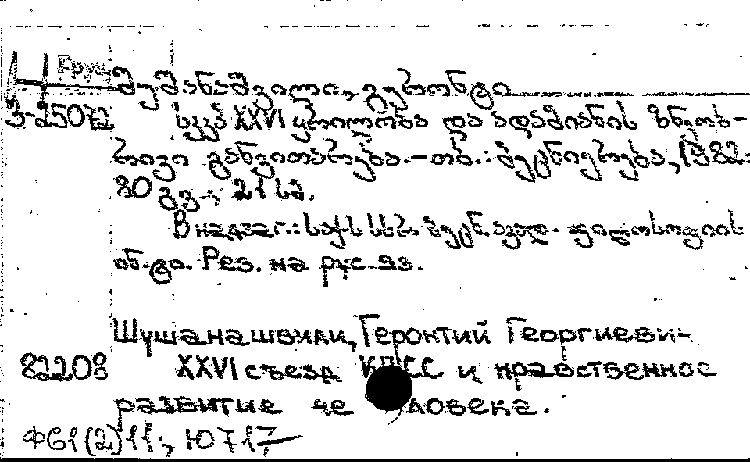 Груз
შუშანაშვილი, გერონტი
3-25072 სკკპ XXVI ყრილობა და ადამიანის ზნეობ-
რივი განვითარება.–თბ.: მეცნიერება, 1982.
80 გვ.; 21 სმ.
В надзаг.: საქ. სსრ მეცნ. აკად. ფილოსოფიის
ინ-ტი. Рез. на рус. яз.
Шушанашвили, Геронтий Георгиеви-
82208 XXVI съезд КПСС и нравственное
развитие че ловека.
Ф61(2)11; Ю717